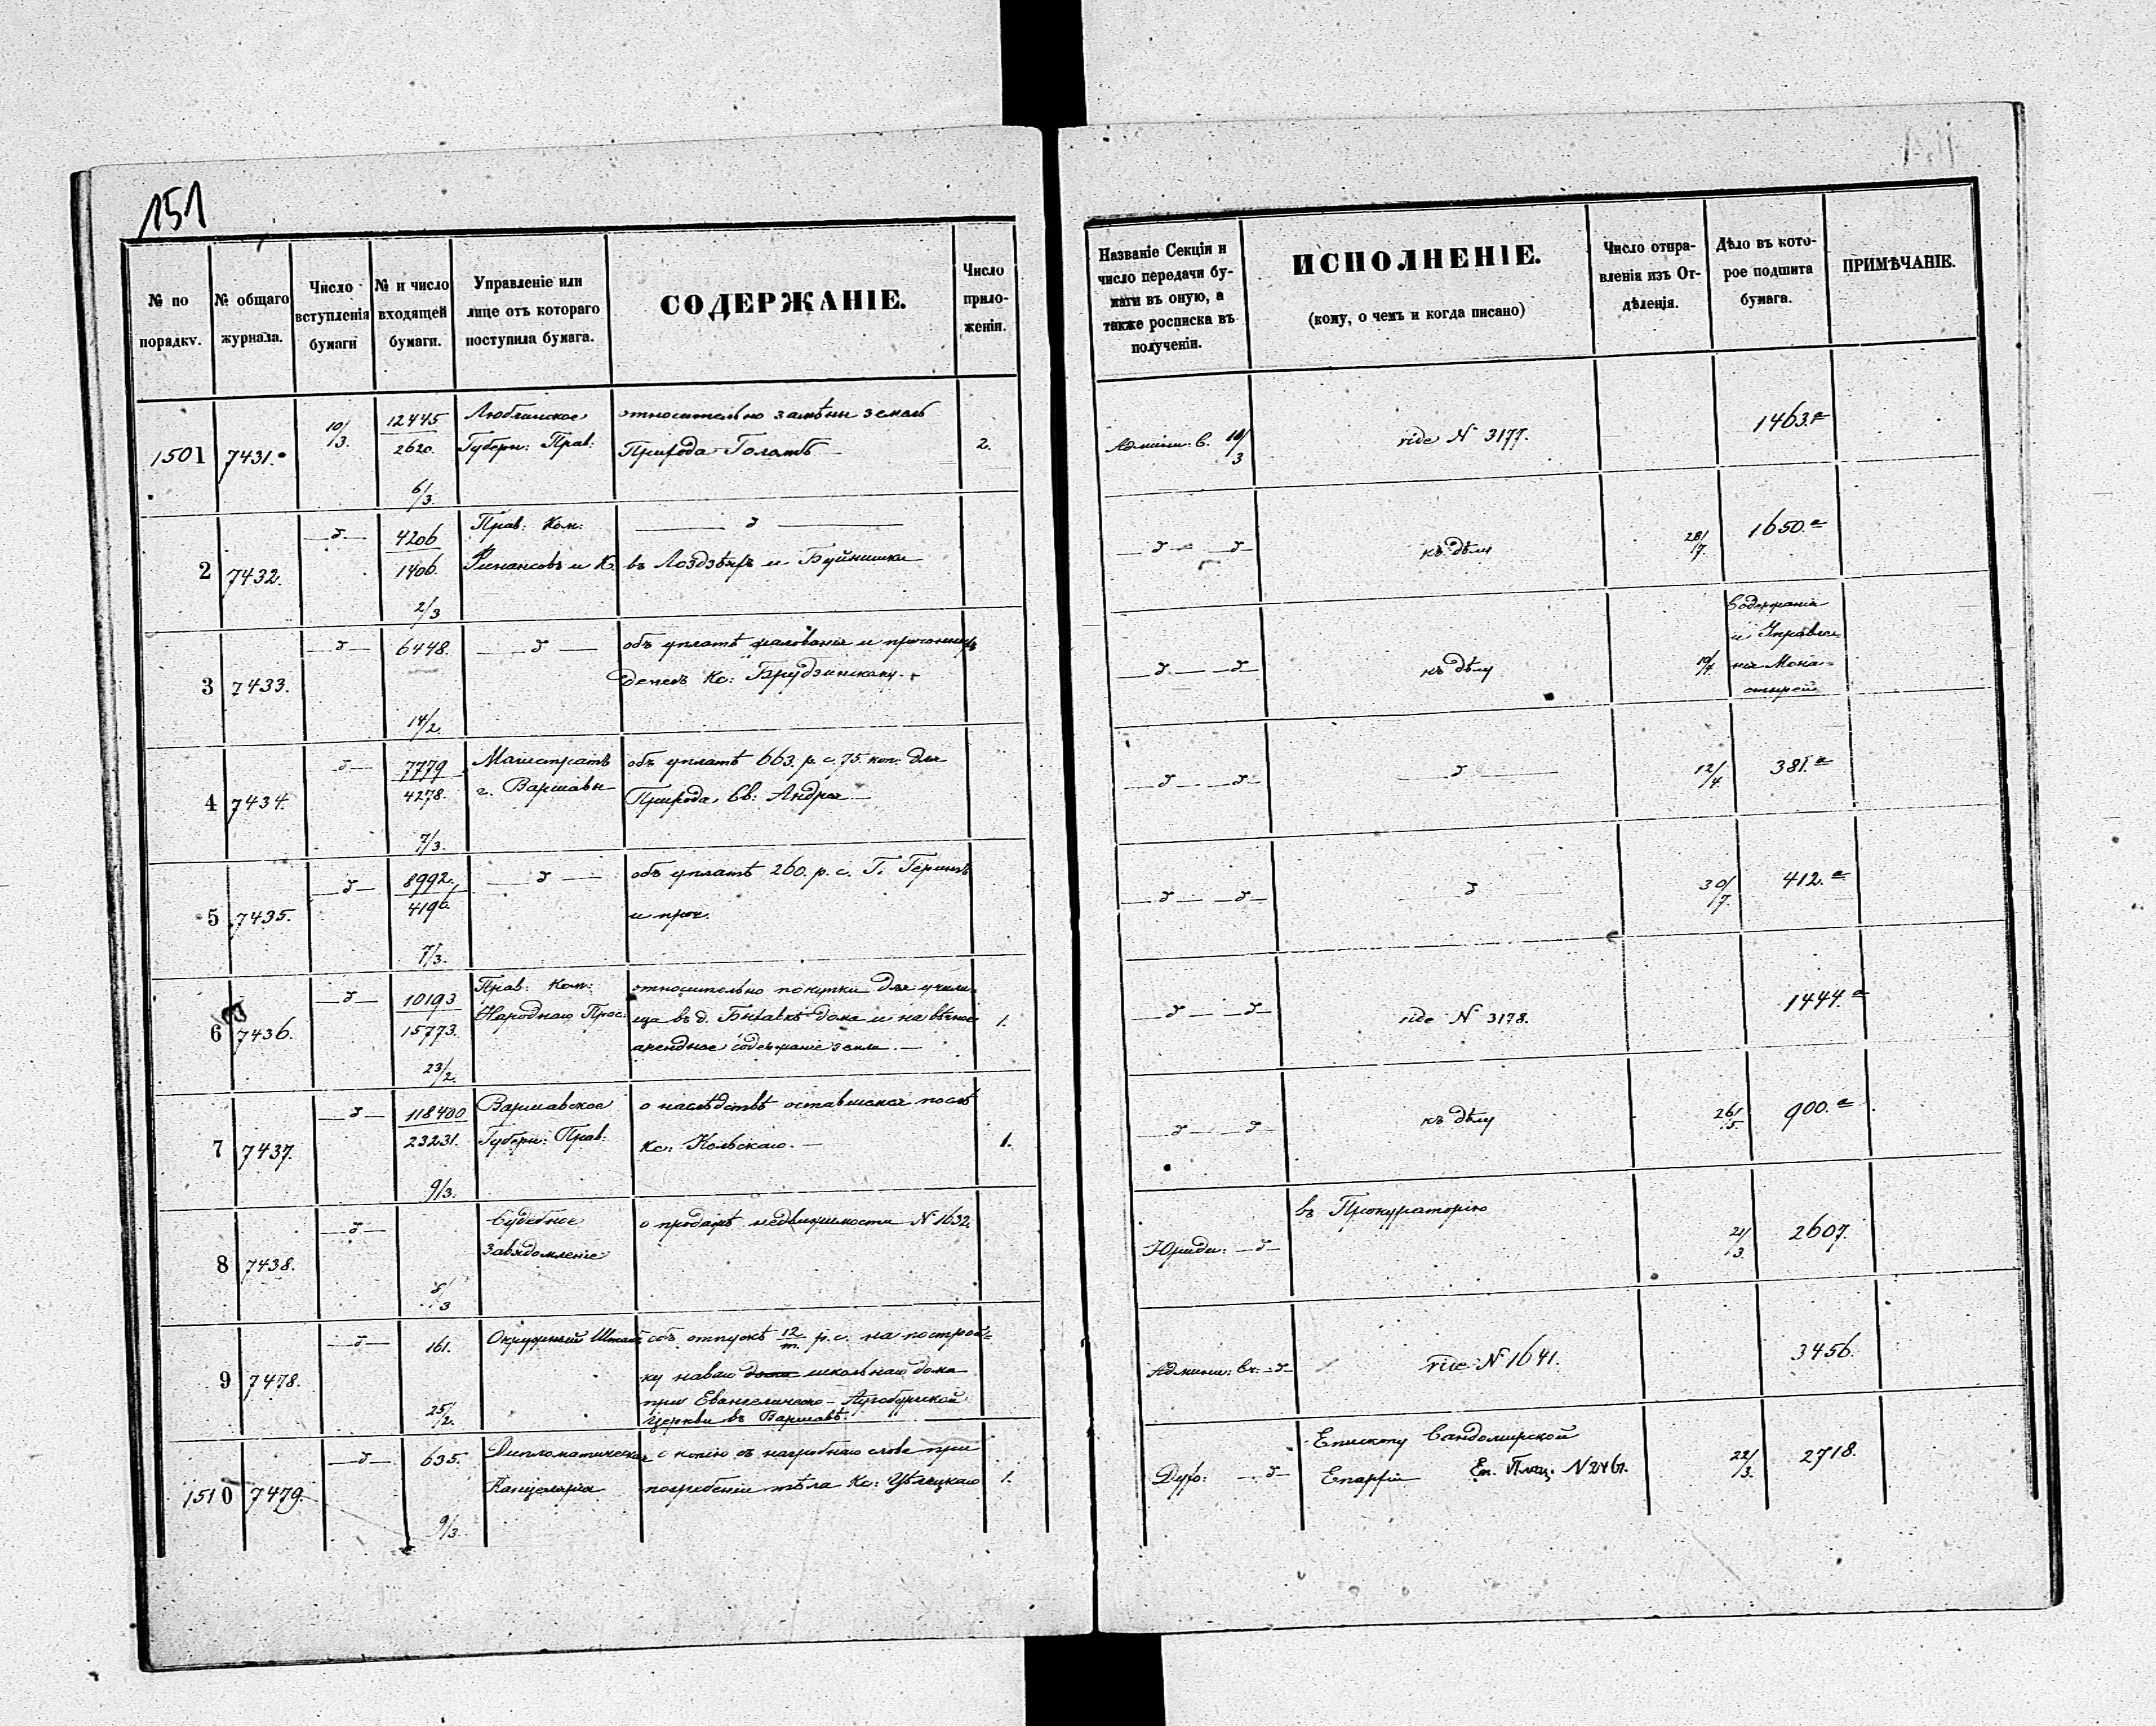 151
№ по порядку.
№ общаго журнала.
Число вступленія бумаги
№ и число входящей бумаги.
Управленіе или лице отъ котораго поступила бумага.
СОДЕРЖАНІЕ.
Число приложеній.
Названіе Секціи и число передачи бумаги въ оную, а также росписка въ полученіи.
ИСПОЛНЕНІЕ.
(кому, о чемъ и когда писано)
Число отправленія изъ Отдѣленія.
Дѣло въ которое подшита бумага.
ПРИМѢЧАНІЕ.
1501 7431. 10/3. 12445 Люблинское относительно замѣны земель
2620. Губерн: Прав: Прихода 2. Админ: С. 10/3 vide N 3177. 1463.a
6/3.
2 7432. —д— 4206 Прав: Ком: —д—
1406. Финансовъ и К. въ и —д— —д— къ дѣлу 28/7. 1650.a
2/3
3 7433. —д— 6448. —д— объ уплатѣ жалованія и прогонныхъ
денегъ Кс: Брудзинскому. —д— —д— къ дѣлу 10/7. Содержанія
и Управле=
нія Мона=
стырей
14/2.
4 7434. —д— 7779 Магистратъ объ уплатѣ 663. р. с. 75. коп. для
4278. г. Варшавы Прихода Св: Андрея —д— —д— —д— 12/4. 381.a
7/3.
5 7435. —д— 8992. —д— объ уплатѣ 260. р. с. Г.
4196. и проч. —д— —д— —д— 30/7. 412.a
7/3.
6 7436. —д— 10193 Прав: Ком: относительно покупки для учили=
15773. Народнаго Прос: ща въ д. дома и на вѣчное 1. —д— —д— vide N 3178. 1444.a
арендное содержаніе земли.
23/2.
7 7437. —д— 118400 Варшавское о наслѣдствѣ оставшемся послѣ
23231. Губерн: Прав: Кс: Кольскаго. 1. —д— —д— къ дѣлу 26/5. 900.a
9/3.
8 7438. —д— Судебное о продажѣ недвижимости N 1632. въ Прокураторію
Завѣдомленіе Юриди: —д— 21/3. 2607.
8/3
9 7478. —д— 161. Окружный Штабъ объ отпускѣ 12/m. р. с. на построй=
ку новаго дома школьнаго дома Админи: Св: —д— vide N 1641. 3456.
при Евангелическо-Аугсбургской
25/2. церкви въ Варшавѣ.
1510 7479. —д— 635. Дипломатическая съ копіею съ надгробнаго слова при Епископу Сандомирской
Канцелярія погребеніи тѣла Кс: 1. Дух: —д— Епархіи N 2461. 22/3. 2718.
9/3.